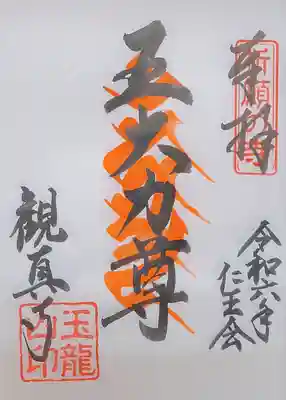 奉拝
祈願寺
五大力尊
令和六年
仁王会
観真寺
玉龍